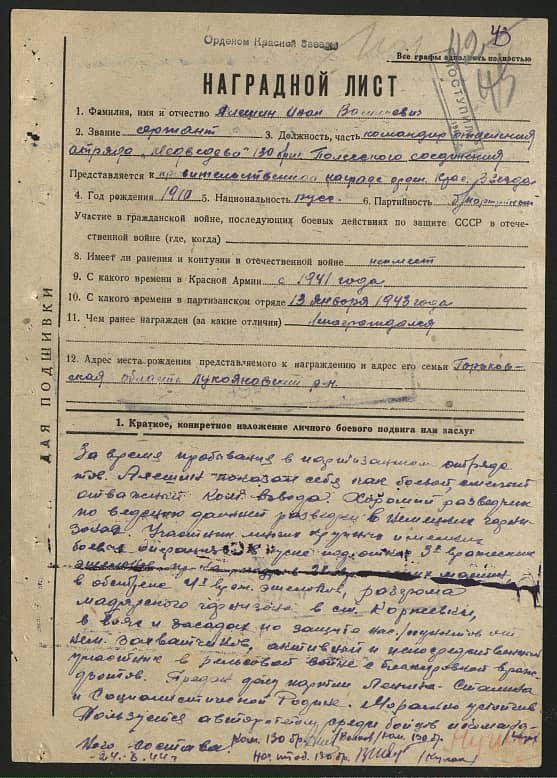 Орденом Красной Звезды
43
Все графы заполнять полностью
НАГРАДНОЙ ЛИСТ
1. Фамилия, имя и отчество Алешин Иван
2. Звание сержант 3. Должность, часть командир отделения
отряда „Медведева" 130 бриг. Полесского соединения
Представляется к правительственной награде орд. Крас. Звезда
4. Год рождения 1910 5. Национальность русс. 6. Партийность
Участие в гражданской войне, последующих боевых действиях по защите СССР в отече-
ственной войне (где, когда)
8. Имеет ли ранения и контузии в отечественной войне не имеет
9. С какого времени в Красной Армии с 1941 года
10. С какого времени в партизанском отряде 13 января 1943 года
11. Чем ранее награжден (за какие отличия)
12. Адрес места рождения представляемого к награждению и адрес его семьи Горьков-
ская область Лукояновский р-н.
ДЛЯ ПОДШИВКИ
1. Краткое, конкретное изложение личного боевого подвига или заслуг
За время пребывания в партизанском отряде
тов. Алешин показал себя как боевой
отважный ком. взвода. Хороший разведчик
по ведению разведки в немецких гарни-
зонах. Участник многих крупных и мелких
боевых операций. 3х вражеских
эшелонов
в обстреле 4х враж. эшелонов, разгрома
мадьярского гарнизона в
в боях и засадах по защите населения от
нем. захватчиков, активный и непосредственный
участник в рельсовой войне с враж.
Предан делу партии Ленина-Сталина
и Социалистической Родине. Морально устойчив
Пользуется авторитетом среди бойцов и команд-
ного состава. Ком. 130 бр.
Нач. штаб. 130 бр.